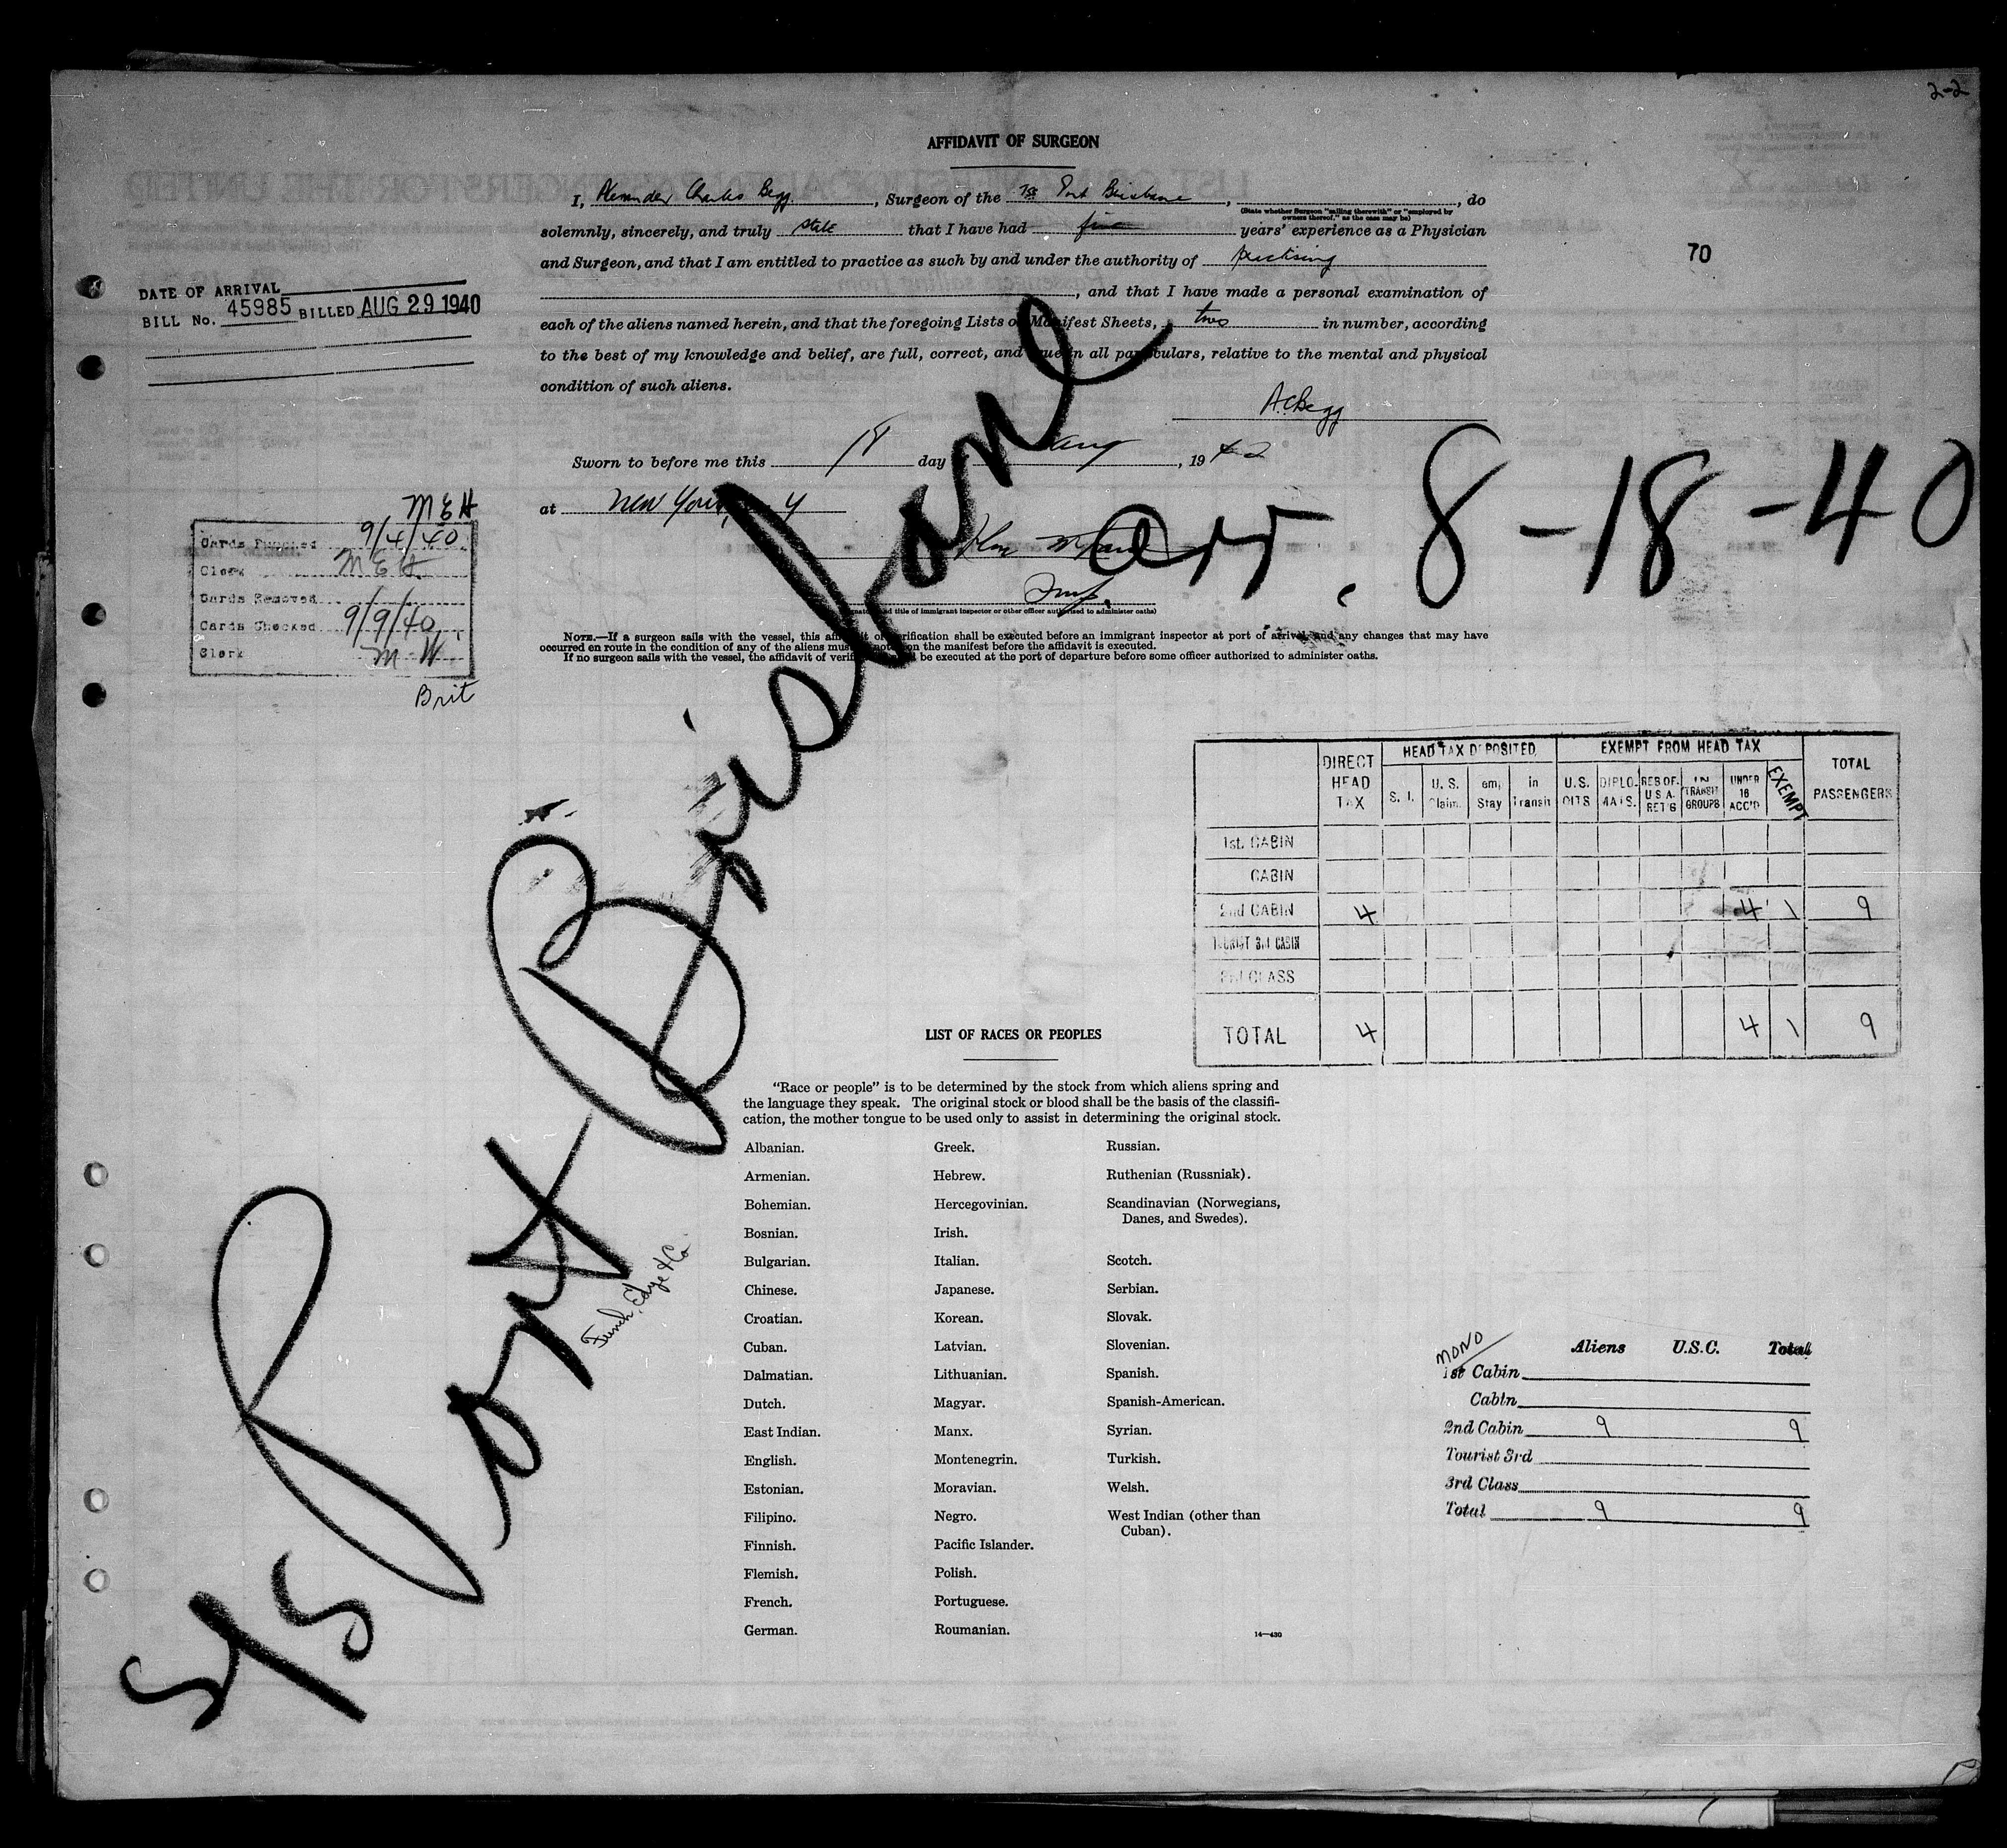 2-2
AFFIDAVIT OF SURGEON
I, Alexander Charles Begg, Surgeon of the Port Brisbane, , do
(State whether Surgeon "sailing therewith" or "employed by
owners thereof," as the case may be)
solemnly, sincerely, and truly state that I have had five years' experience as a Physician
and Surgeon, and that I am entitled to practice as such by and under the authority of practising
, and that I have made a personal examination of
each of the aliens named herein, and that the foregoing Lists or Manifest Sheets, two in number, according
to the best of my knowledge and belief, are full, correct, and true in all particulars, relative to the mental and physical
condition of such aliens.
70
DATE OF ARRIVAL
BILL No. 45985 BILLED AUG 29 1940
A.C. Begg
Sworn to before me this 18 day Aug, 19
at New York, N Y
Insp.
(Signature and title of immigrant inspector or other officer authorized to administer oaths)
arr. 8-18-40
M E H
Cards Punched 9/4/40
Clerk M E H.
Cards Removed
Cards Checked 9/9/40
Clerk M. W.
Brit
NOTE.—If a surgeon sails with the vessel, this affidavit or verification shall be executed before an immigrant inspector at port of arrival, and any changes that may have
occurred en route in the condition of any of the aliens must be noted on the manifest before the affidavit is executed.
If no surgeon sails with the vessel, the affidavit of verification shall be executed at the port of departure before some officer authorized to administer oaths.
S/S Port Brisbane
Funch, Edye & Co.
DIRECT HEAD TAX HEAD TAX DEPOSITED EXEMPT FROM HEAD TAX TOTAL PASSENGERS
S. I. U. S. Claim. Tem. Stay in Transit U.S. CITS DIPLO-MATS. RES OF U.S.A. RET'G IN TRANSIT GROUPS UNDER 16 ACC'D EXEMPT
1st. CABIN
CABIN
2nd CABIN 4 4 1 9
TOURIST 3rd CABIN
3rd CLASS
TOTAL 4 4 1 9
LIST OF RACES OR PEOPLES
"Race or people" is to be determined by the stock from which aliens spring and
the language they speak. The original stock or blood shall be the basis of the classifi-
cation, the mother tongue to be used only to assist in determining the original stock.
Albanian.
Armenian.
Bohemian.
Bosnian.
Bulgarian.
Chinese.
Croatian.
Cuban.
Dalmatian.
Dutch.
East Indian.
English.
Estonian.
Filipino.
Finnish.
Flemish.
French.
German.
Greek.
Hebrew.
Hercegovinian.
Irish.
Italian.
Japanese.
Korean.
Latvian.
Lithuanian.
Magyar.
Manx.
Montenegrin.
Moravian.
Negro.
Pacific Islander.
Polish.
Portuguese.
Roumanian.
Russian.
Ruthenian (Russniak).
Scandinavian (Norwegians,
Danes, and Swedes).
Scotch.
Serbian.
Slovak.
Slovenian.
Spanish.
Spanish-American.
Syrian.
Turkish.
Welsh.
West Indian (other than
Cuban).
14—430
MONO
Aliens U.S.C. Total
1st Cabin
Cabin
2nd Cabin 9 9
Tourist 3rd
3rd Class
Total 9 9